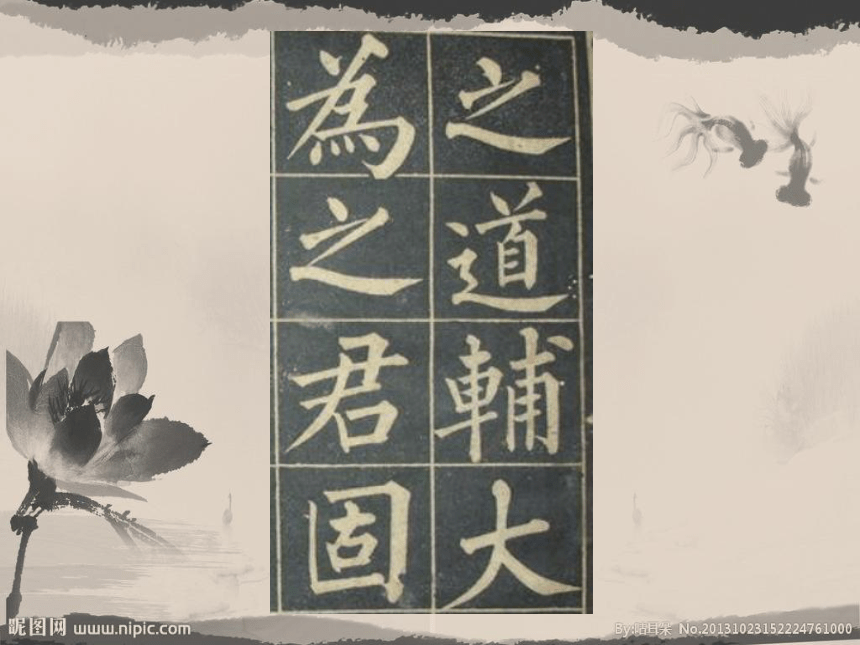 之道輔大
為之君固
昵图网 www.nipic.com
No.20131023152224761000